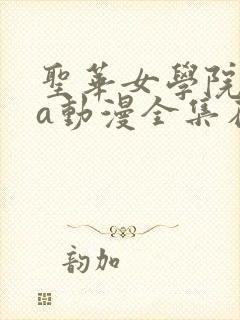 聖華女學院
a動漫全集
韵加